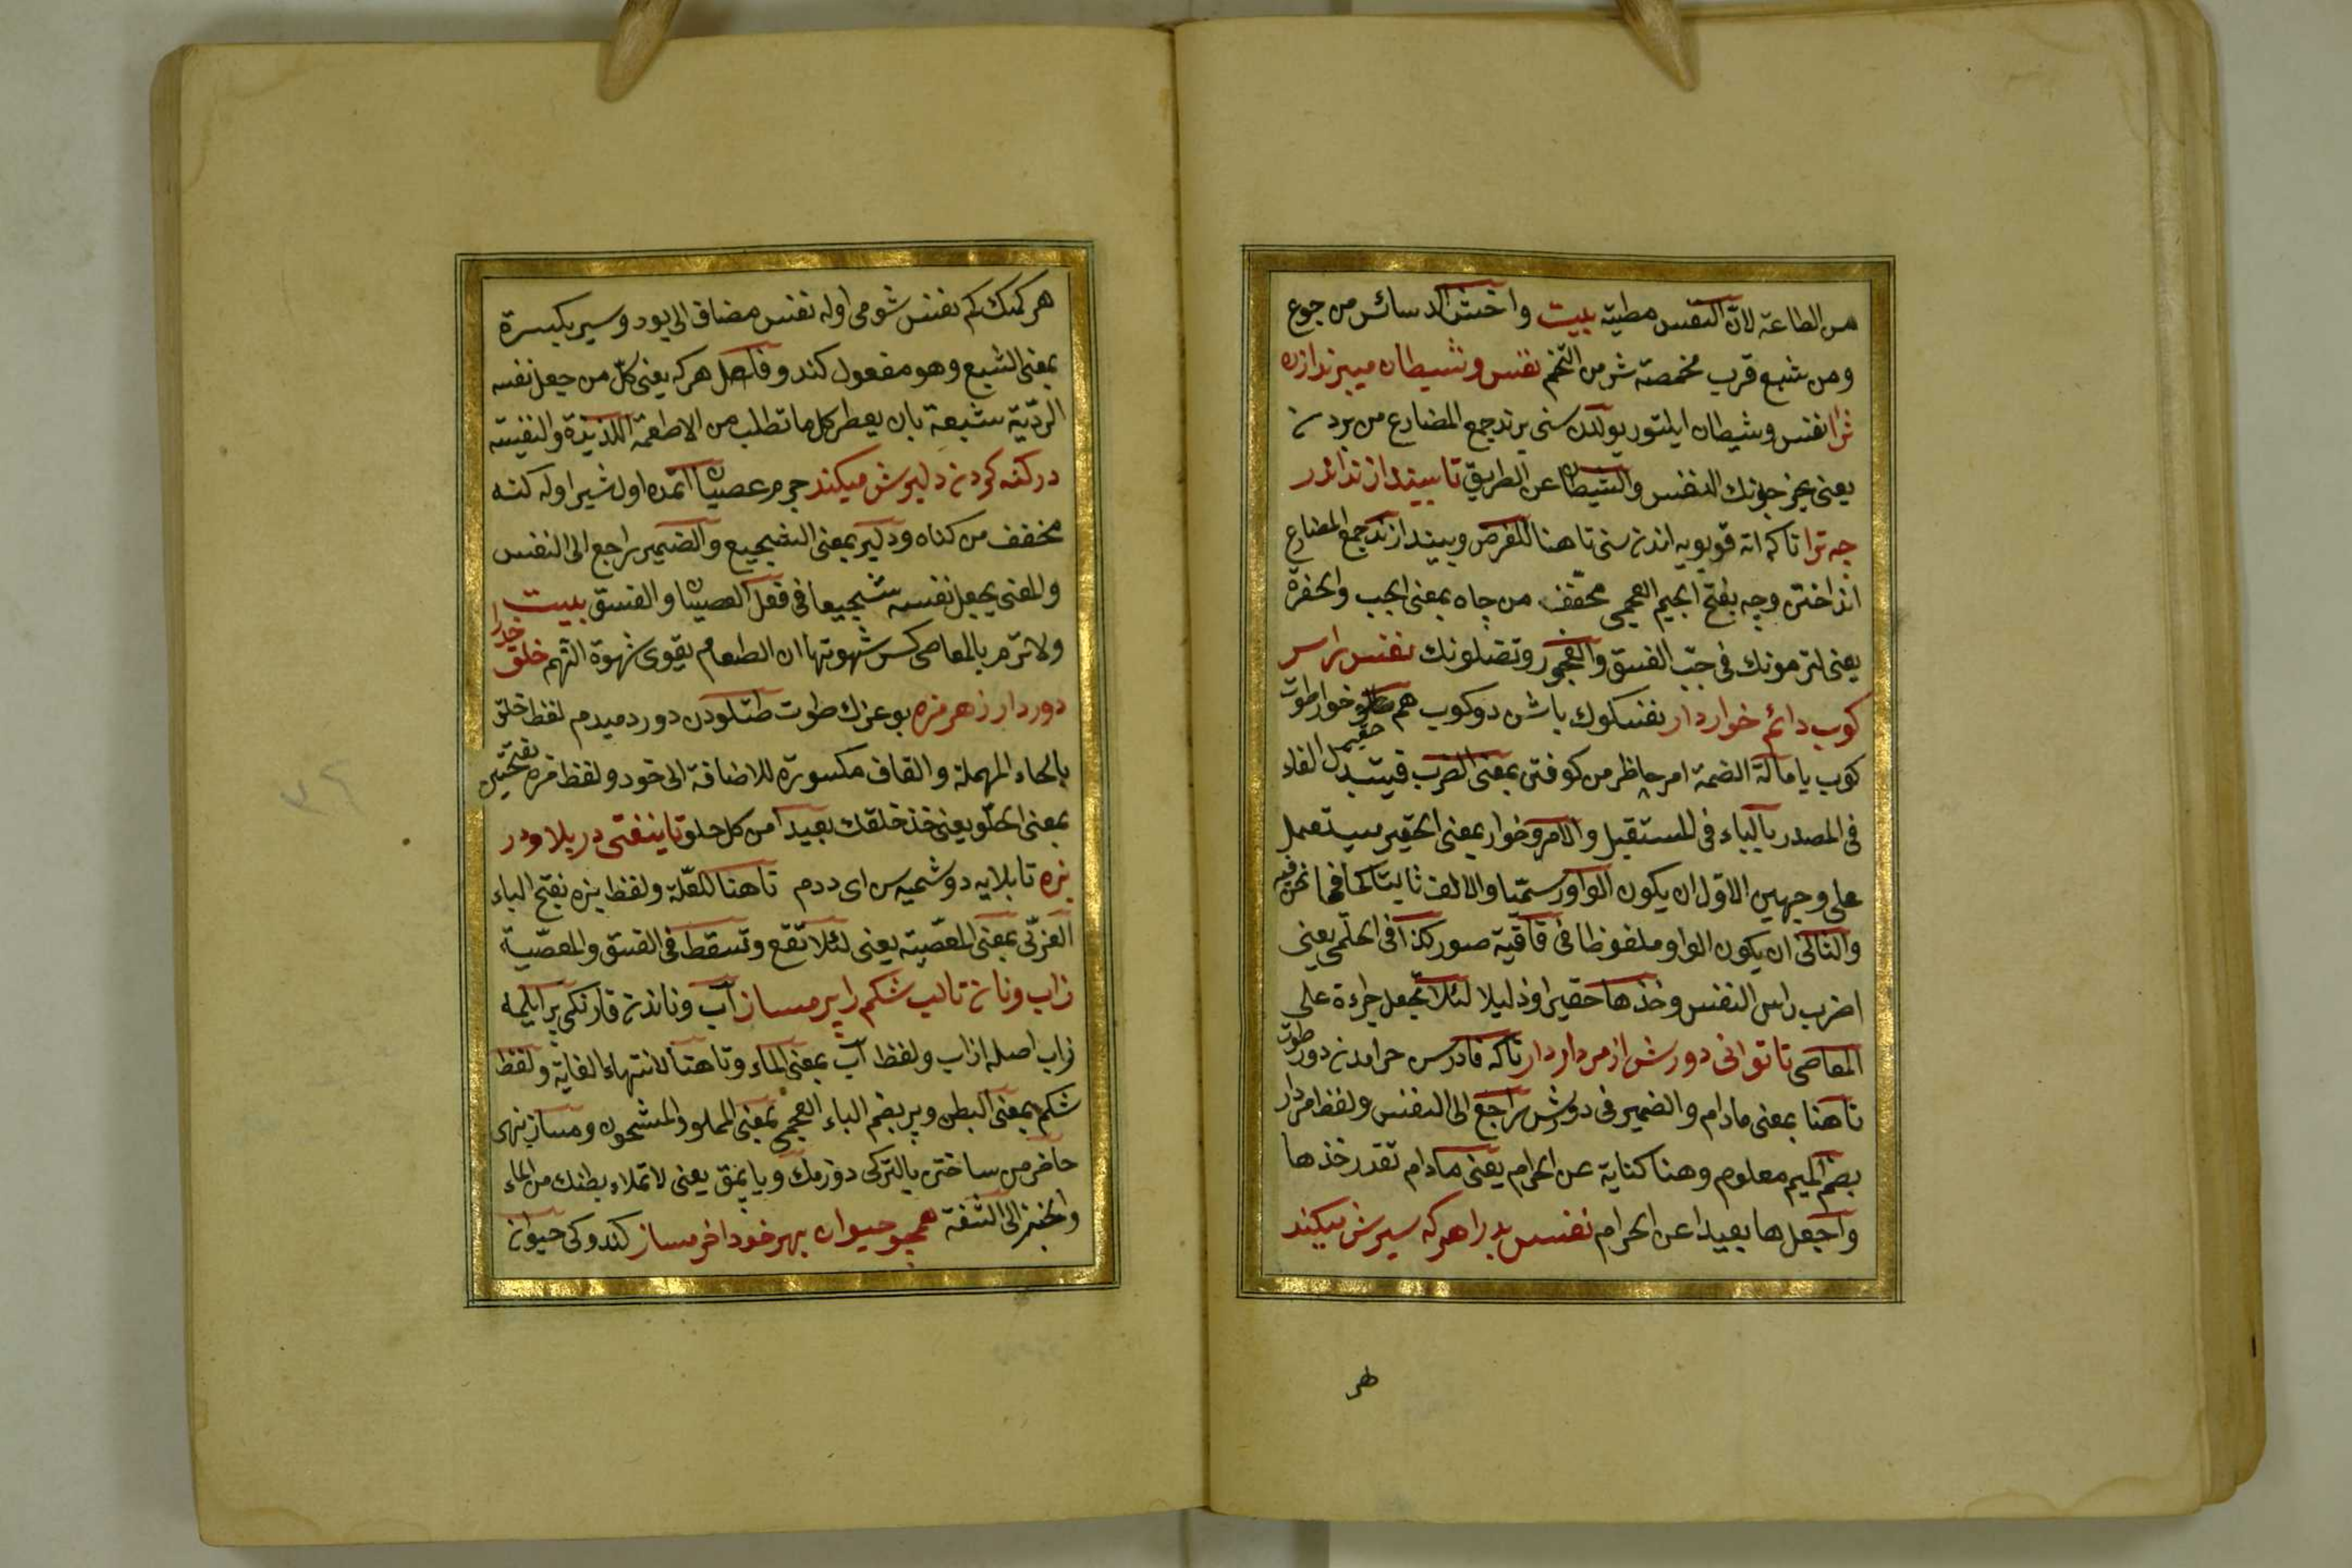 من الطاعة لان النفس مطية بيت واخش الدسائس من جوع
ومن شبع فرب مخمصة شر من التخم نفس وشيطان ميبرند ازره
ترا نفس وشيطان ايلتور يولدن سنى برند جمع المضارع من بردن
يعنى يخرجونك النفس والشيطان عن الطريق تا بيندازند اندر
چه ترا تاكه اته قويويه اندن سنى تا هنا للغرض وبيندازند جمع المضارع
انداختن وچه بفتح الجيم العجمى مخفف من چاه بمعنى الجب والحفرة
يعنى لترمونك فى جب الفسق والفجور وتضلونك نفس را سر
كوب دائم خوار دار نفسكوك باشن دوكوب هم خوار طوت
كوب بامالة الضمة امر حاظر من كوفتن بمعنى الضرب فيتبدل الفاء
فى المصدر بالباء فى المستقبل والامر وخوار بمعنى الحقير يستعمل
على وجهين الاول ان يكون الواو رسما والالف ثابتا كما فيما نحن فيه
والثانى ان يكون الواو ملفوظا فى قافية صور كذا فى الحلمى يعنى
اضرب راس النفس وخذها حقيرا وذليلا لئلا تجعل جراءة على
المعاصى تا توانى دورش از مردار دار تاكه قادرسن حرامدن دور طوت
تا هنا بمعنى مادام والضمير فى دورش راجع الى النفس ولفظ مردار
بضم الميم معلوم وهنا كناية عن الحرام يعنى مادام تقدر خذها
واجعلها بعيدا عن الحرام نفس بد را هر كه سيرش ميكند
هر
هر كمسك كم نفس شومى اوله نفس مضاف الى بود وسير بكسرة
بمعنى الشبع وهو مفعول كند وفاعل هر كه يعنى كل من جعل نفسه
الردية شبعة بان يعطى كل ما تطلب من الاطعمة اللذيذة والنفيسة
در كنه كردن دليرش ميكند جرم عصيان اتمده اول شير اوله كنه
مخفف من كناه ودلير بمعنى الشجيع والضمير راجع الى النفس
والمعنى يجعل نفسه شجيعا فى فعل العصيان والفسق بيت
ولا ترم بالمعاصى كسر شهوتها ان الطعام يقوى شهوة النهم خلق خدرا
دور دار زهر مزه بوغزك طوت طتلودن دور دميدم لفظ خلق
بالحاء المهملة والقاف مكسورة للاضافة الى خود ولفظ مزه بفتحتين
بمعنى الحلو يعنى خذ خلقك بعيدا من كل حلو تا نيفتى در بلا ودر
بزه تا بلايه دوشميه سن اى ددم تا هنا للعلة ولفظ بزه بفتح الباء
العربى بمعنى المعصية يعنى لئلا تقع وتسقط فى الفسق والمعصية
زاب ونان تا لب شكم را پر مساز آب وناندن قارنكى پر ايلمه
زاب اصله از اب ولفظ آب بمعنى الماء وتا هنا لانتهاء الغاية ولفظ
شكم بمعنى البطن وپر بضم الباء العجمى بمعنى المملو والمشحون ومساز نهى
حاضر من ساختن بالتركى دوزمك ويا پمق يعنى لا تملاء بطنك من الماء
والخبز الى الشفة همچو حيوان بهر خود اخر مساز كندوكى حيوان